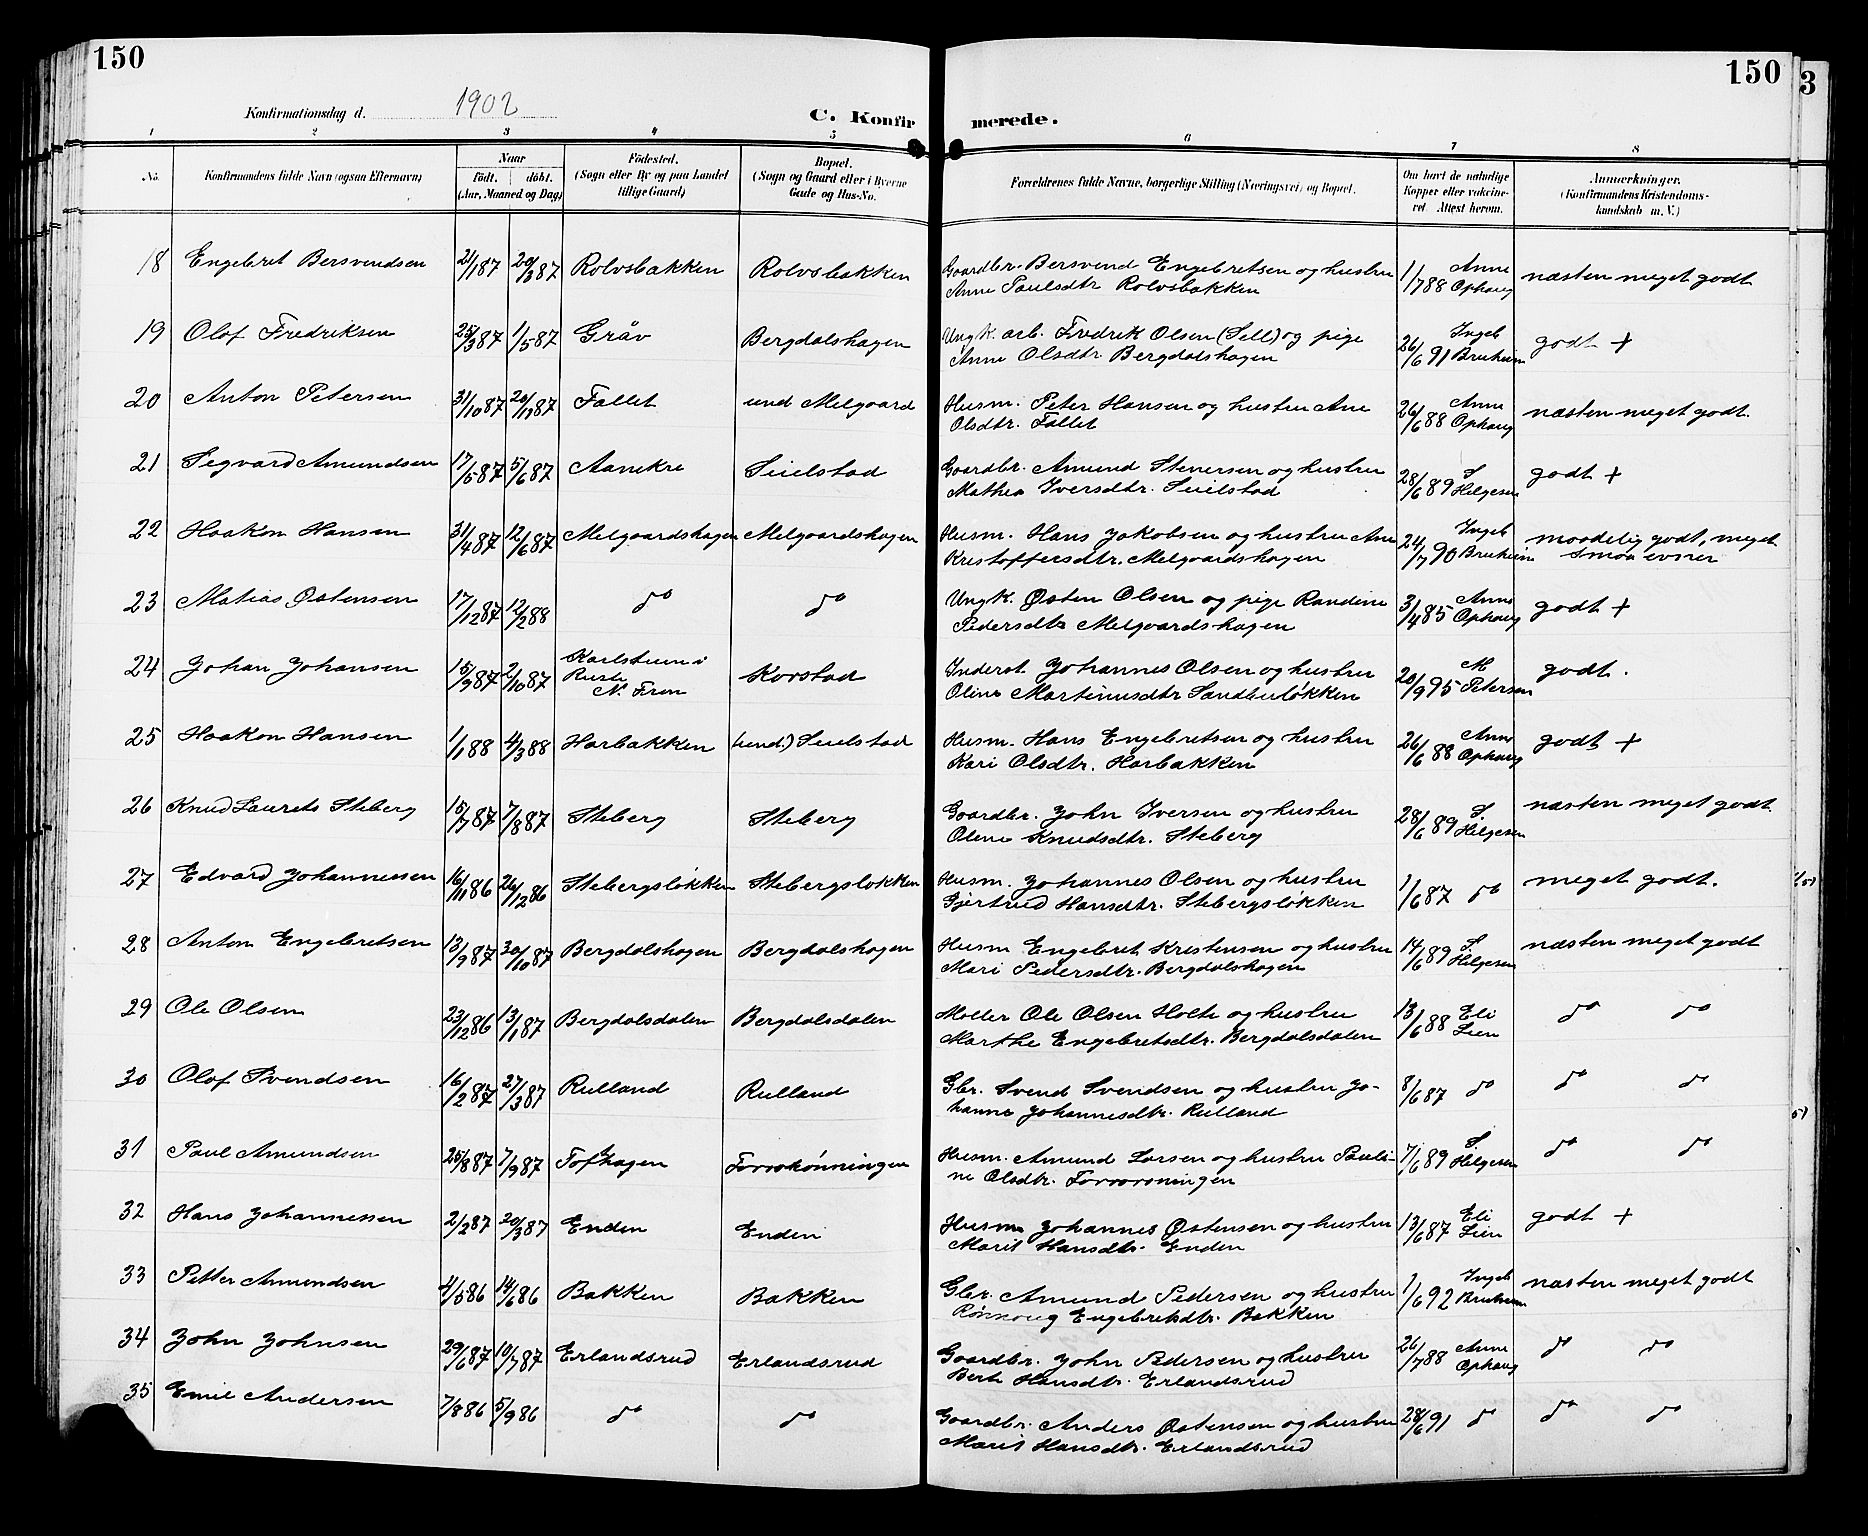 150
150
3
Konfirmationsdag d. 1902
C. Konfirmerede.
1 2 3 4 5 6 7 8
No.
Konfirmandens fulde Navn (ogsaa Efternavn)
Naar
födt. döbt.
(Aar, Maaned og Dag)
Födested.
(Sogn eller By og paa Landet
tillige Gaard)
Bopæl.
(Sogn og Gaard eller i Byerne
Gade og Hus-No.
Forældrenes fulde Navne, borgerlige Stilling (Næringsvei) og Bopæl.
Om havt de naturlige
Kopper eller vaksine-
ret Attest herom.
Anmerkninger.
(Konfirmandens Kristendoms-
kundskab m. V.)
18 Engebret Bersvendsen 21/1 87 20/3 87 Rolvsbakken Rolvsbakken Gaardbr. Bersvend Engebretsen og hustru 1/7 88 Anne næsten meget godt
Anne Paulsdtr Rolvsbakken Ophaug
19 Olof Fredriksen 25/3 87 1/5 87 Gråv Bergdalshagen Ungk. arb. Fredrik Olsen (Sell) og pige 26/6 91 Ingeb godt +
Anne Olsdtr Bergdalshagen Bruheim
20 Anton Petersen 31/10 87 20/11 87 Fallet und Melgaard Husm. Peter Hansen og hustru Ane 26/6 88 Anne næsten meget godt.
Olsdtr. Fallet Ophaug
21 Segvard Amundsen 17/5 87 5/6 87 Aanekre Seielstad Gaardbr. Amund Stenersen og hustru 28/6 89 S. godt +
Mathea Iversdtr. Seielstad Helgesen
22 Haakon Hansen 31/4 87 12/6 87 Melgaardshagen Melgaardshagen Husm. Hans Jakobsen og hustru Ane 24/7 90 Ingeb maadelig godt, meget
Kristoffersdtr. Melgaardshagen Bruheim smaa evner
23 Matias Østensen 17/12 87 12/2 88 do do Ungk. Østen Olsen og pige Randine 3/4 85 Anne godt +
Pedersdtr Melgaardshagen Ophaug
24 Johan Johansen 15/9 87 2/10 87 Karlstuen i Korstad Inderst. Johannes Olsen og hustru 20/9 95 M godt.
Ruste
N. Fron Oline Martinusdtr Sandbuløkken Petersen
25 Haakon Hansen 1/1 88 4/3 88 Harbakken (und.) Seielstad Husm. Hans Engebretsen og hustru 26/6 88 Anne godt +
Kari Olsdtr. Harbakken Ophaug
26 Knud Laurets Steberg 15/7 87 7/8 87 Steberg Steberg Gaardbr. John Iversen og hustru 28/6 89 S. næsten meget godt
Oline Knudsdtr. Steberg Helgesen
27 Edvard Johannessen 16/11 86 26/12 86 Stebergsløkken Stebergsløkken Husm. Johannes Olsen og hustru 1/6 87 do meget godt.
Gjertrud Hansdtr. Stebergsløkken
28 Anton Engebretsen 13/9 87 30/10 87 Bergdalshagen Bergdalshagen Husm Engebret Kristensen og hustru 14/6 89 S. næsten meget godt
Mari Pedersdtr. Bergdalshagen Helgesen
29 Ole Olsen 23/12 86 13/1 87 Bergdalsdalen Bergdalsdalen Møller Ole Olsen Holte og hustru 13/6 88 Eli do do
Marthe Engebretsdtr. Bergdalsdalen Lien
30 Olof Svendsen 16/2 87 27/3 87 Rulland Rulland Gbr. Svend Svendsen og hustru Jo- 8/6 87 do do do
hanne Johannesdtr. Rulland
31 Paul Amundsen 25/8 87 7/9 87 Tofthagen Husm. Amund Larsen og hustru Pauli- 7/6 89 S. do do
ne Olsdtr. Helgesen
32 Hans Johannessen 2/2 87 20/3 87 Enden Enden Husm Johannes Østensen og hustru 13/6 87 Eli godt +
Marit Hansdtr. Enden Lien
33 Petter Amundsen 4/5 86 14/6 86 Bakken Bakken Gbr. Amund Pedersen og hustru 1/6 92 Ingeb næsten meget godt
Rønnoug Engebretsdtr. Bakken Bruheim
34 John Johnsen 29/6 87 10/7 87 Erlandsrud Erlandsrud Gaardbr. John Pedersen og hustru 26/7 88 Anne do do
Berte Hansdtr. Erlandsrud Ophaug
35 Emil Andersen 7/8 86 5/9 86 do do Gaardbr. Anders Østensen og hustru 28/6 91 do do do
Marit Hansdtr. Erlandsrud